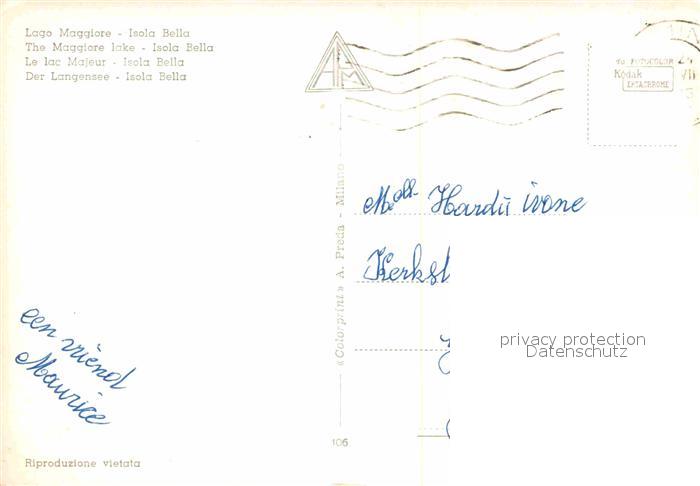 Lago Maggiore - Isola Bella
The Maggiore lake - Isola Bella
Le lac Majeur - Isola Bella
Der Langensee - Isola Bella
da FOTOCOLOR
Kodak
EKTACHROME
Mell. Hardÿ ivone
Kerkst
een vriend
Maurice
«Colorprint» A. Preda - Milano
privacy protection
Datenschutz
106
Riproduzione vietata